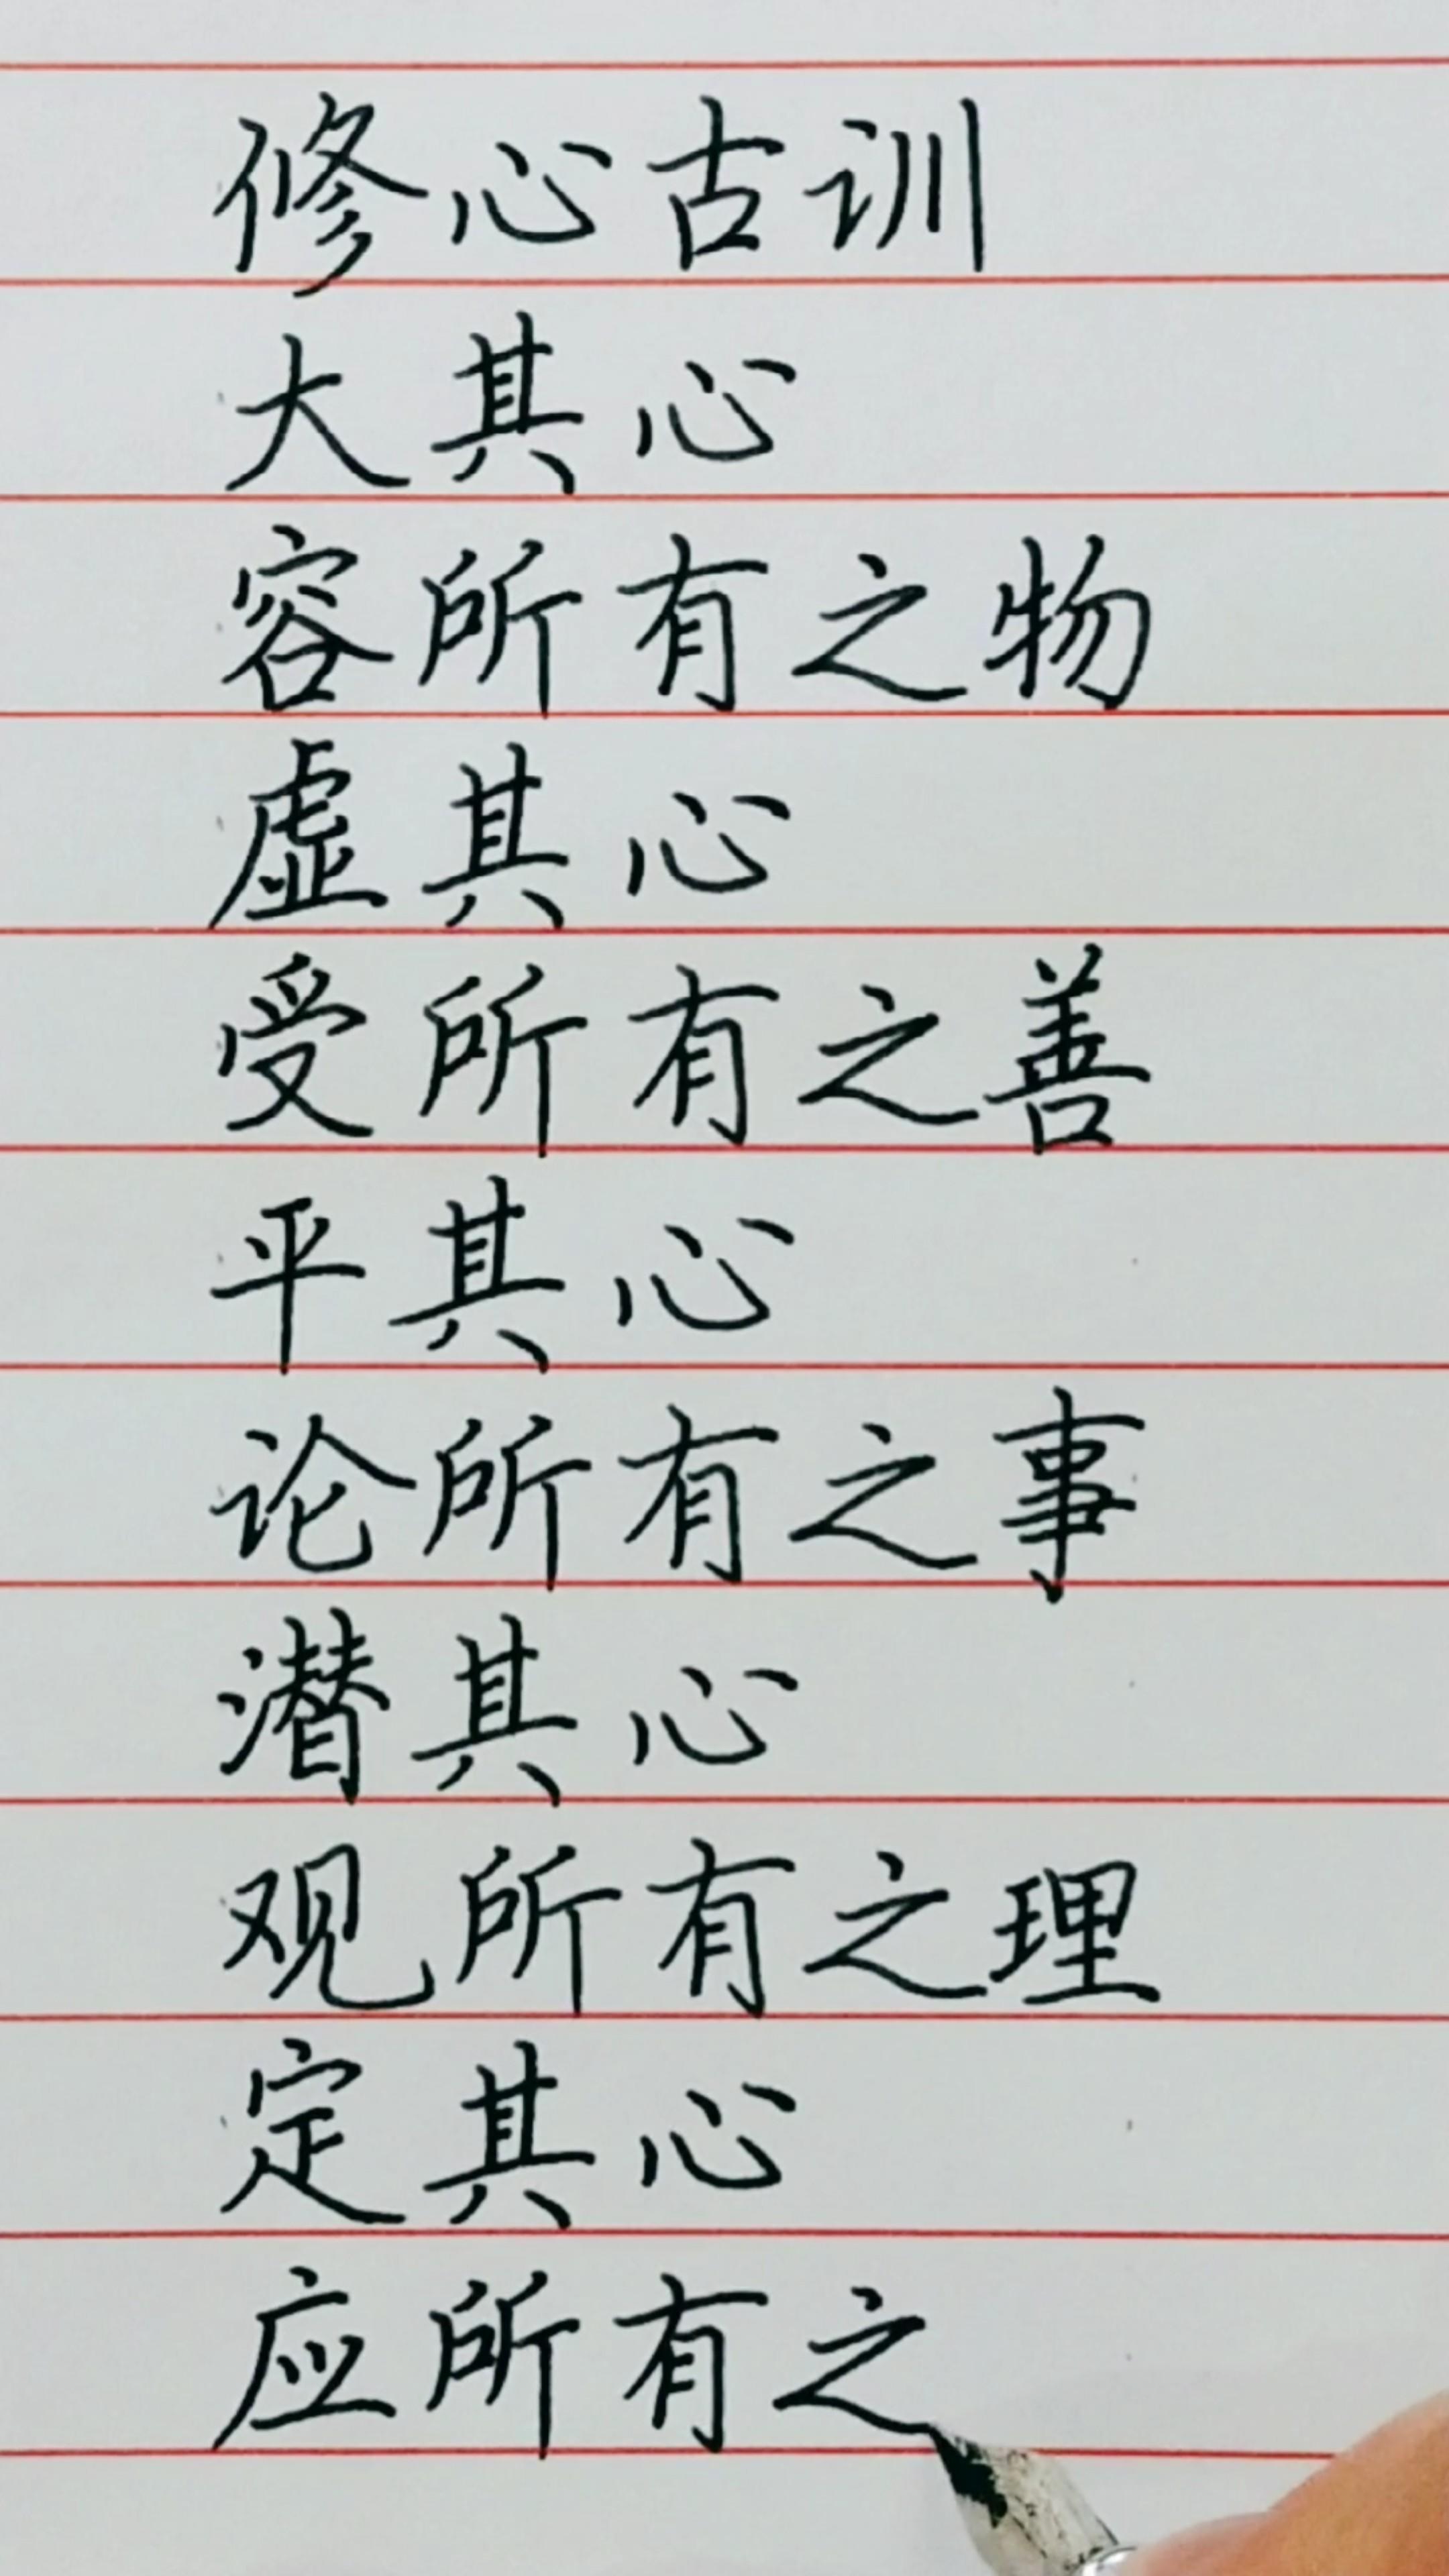 修心古训
大其心
容所有之物
虚其心
受所有之善
平其心
论所有之事
潜其心
观所有之理
定其心
应所有之